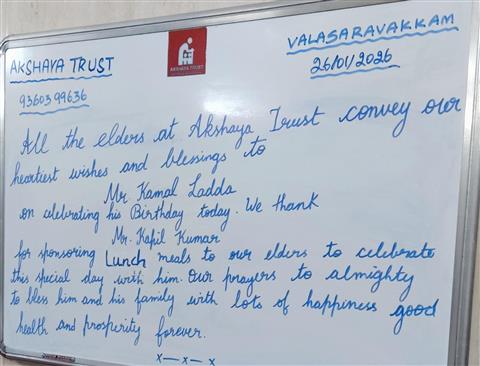 AKSHAYA TRUST
VALASARAVAKKAM
9360399636
AKSHAYA TRUST
26/01/2026
All the elders at Akshaya Trust convey our
heartiest wishes and blessings to
Mr Kamal Ladda
on celebrating his Birthday today. We thank
Mr. Kapil Kumar
for sponsoring Lunch meals to our elders to celebrate
this special day with him. Our prayers to almighty
to bless him and his family with lots of happiness good
health and prosperity forever.
x—x—x